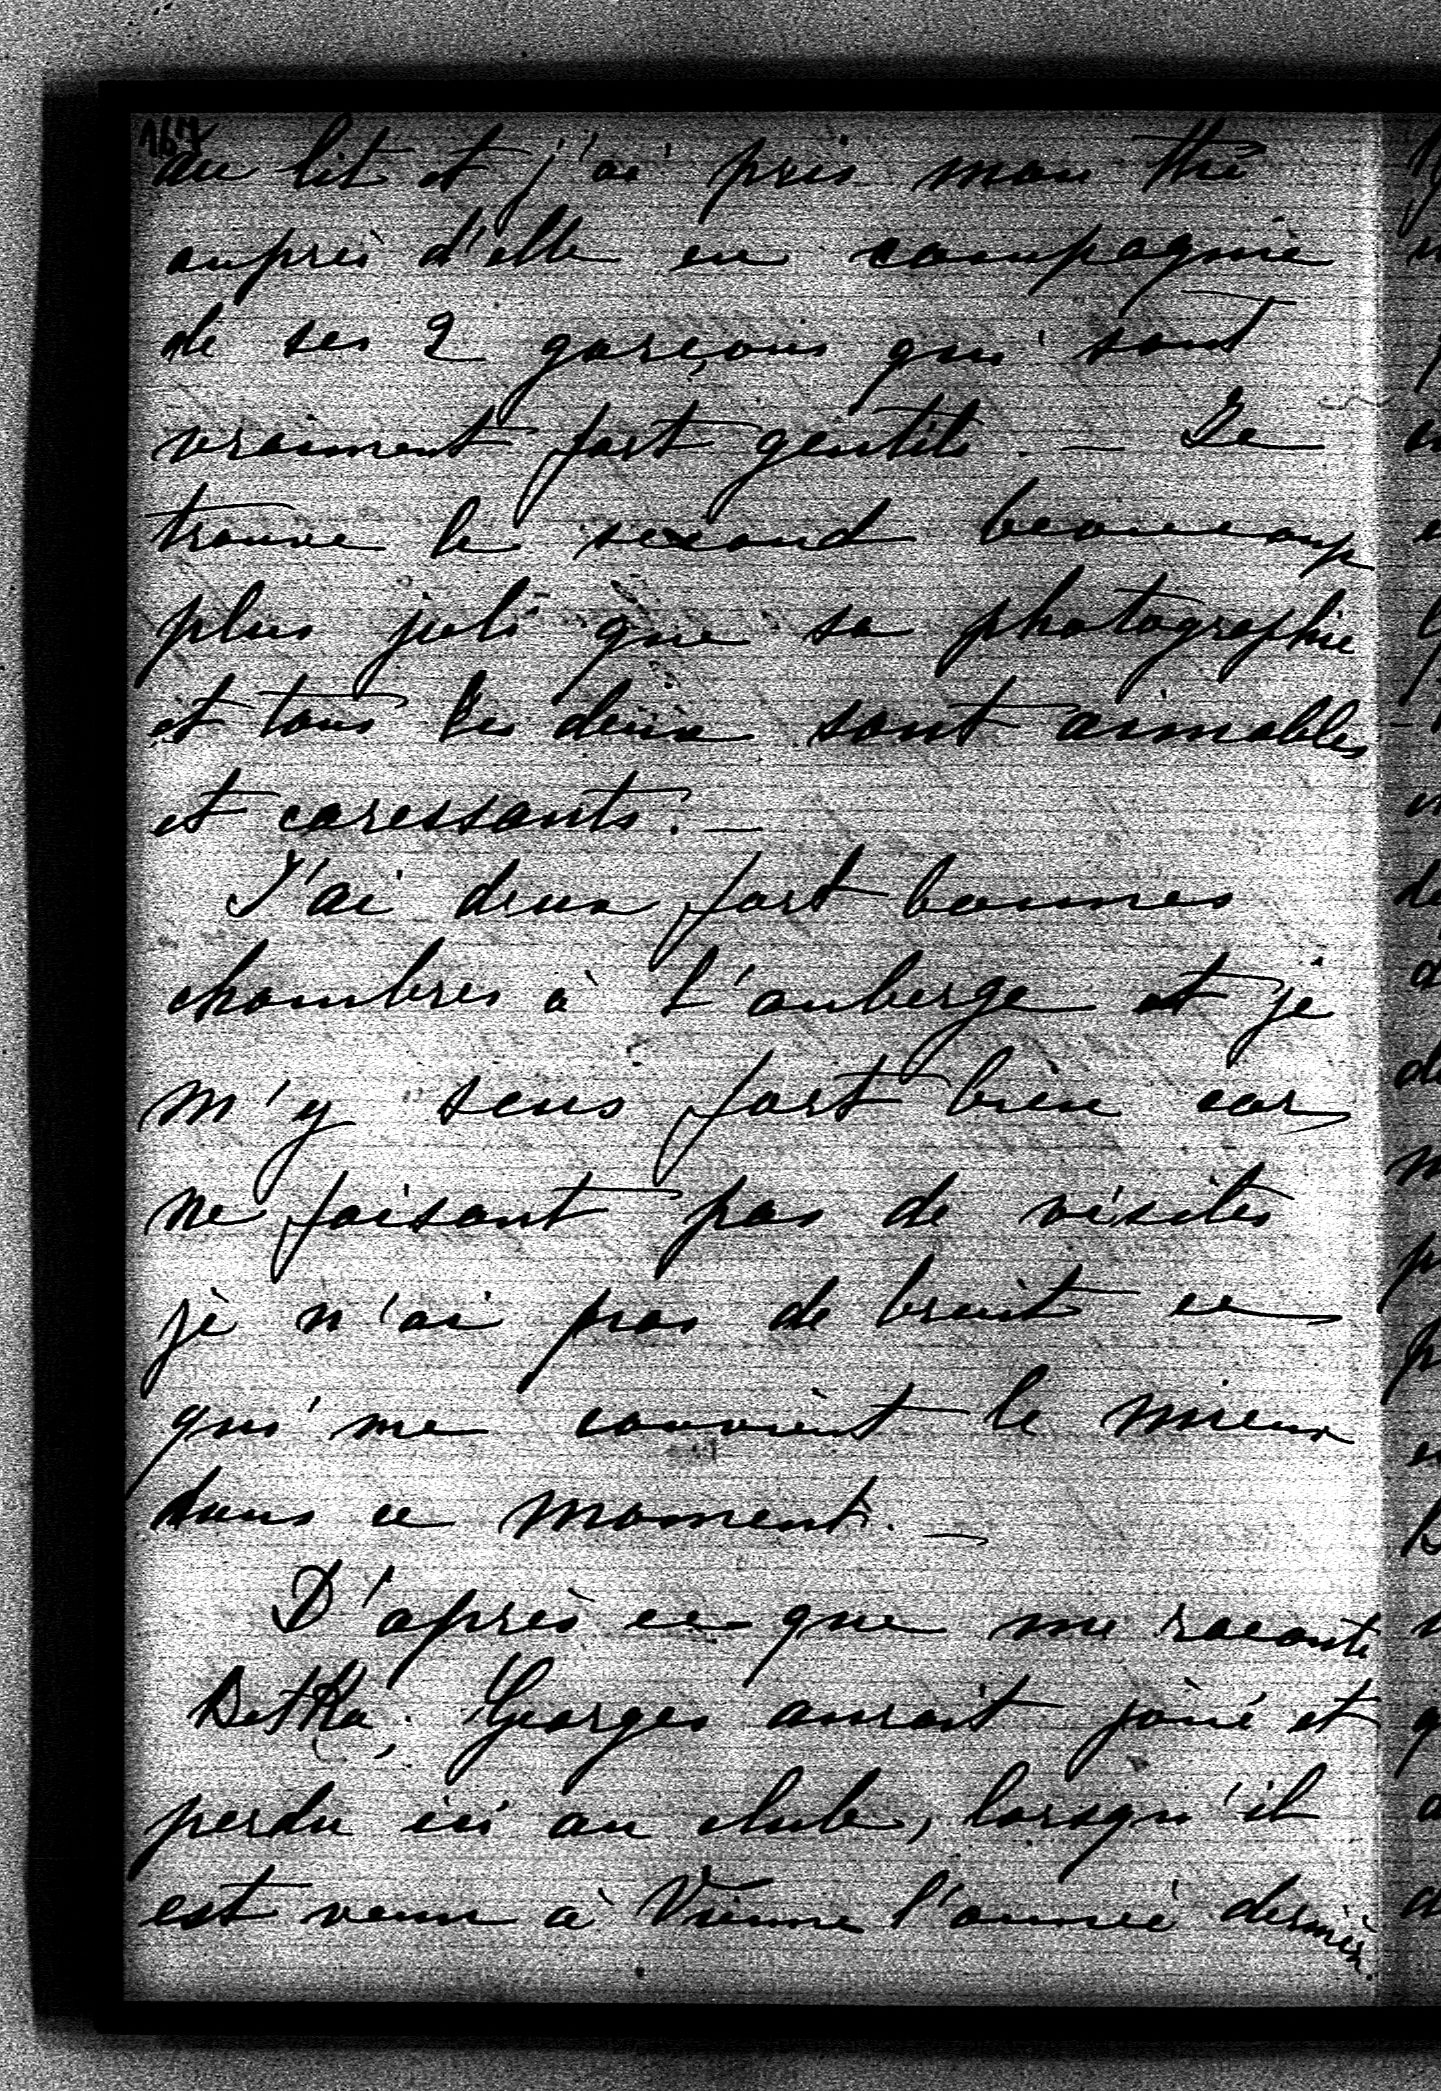 167
au lit et j'ai pris mon thé
auprès d'elle en compagnie
de ses 2 garçons qui sont
vraiment fort gentils. — Je
trouve le second beaucoup
plus joli que sa photographie
et tous les deux sont aimables
et caressants. —
J'ai deux fort bonnes
chambres à l'auberge et je
m'y sens fort bien car
ne faisant pas de visites
je n'ai pas de bruit ce
qui me convient le mieux
dans ce moment. —
D'après ce que me raconte
Betka, Georges aurait joué et
perdu ici au club, lorsqu'il
est venu à Vienne l'année dernièr.